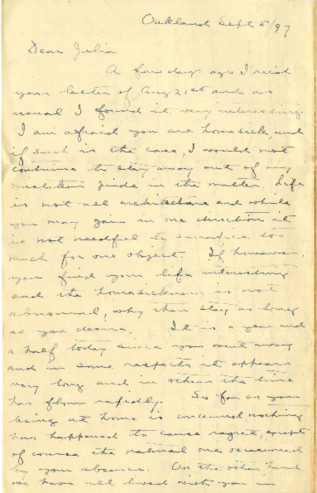 Oakland Sept 5/97
Dear Julia
A few days ago I rec'd
your letter of Aug 21st and as
usual I found it very interesting
I am afraid you are homesick and
if such is the case, I would not
continue to stay away out of any
mistaken guide in the matter. Life
is not all architecture and while
you may gain in one direction it
is not needful to sacrifice too
much for one object. If however,
you find your life interesting
and the homesickness is not
abnormal, why then stay as long
as you desire. It is a year and
a half today since you went away
and in some respects it appears
very long and in others the time
has flown rapidly. So far as your
being at home is concerned nothing
has happened to cause regret, except
of course the natural one occasioned
by your absence. On the other hand
we have all lived with you in